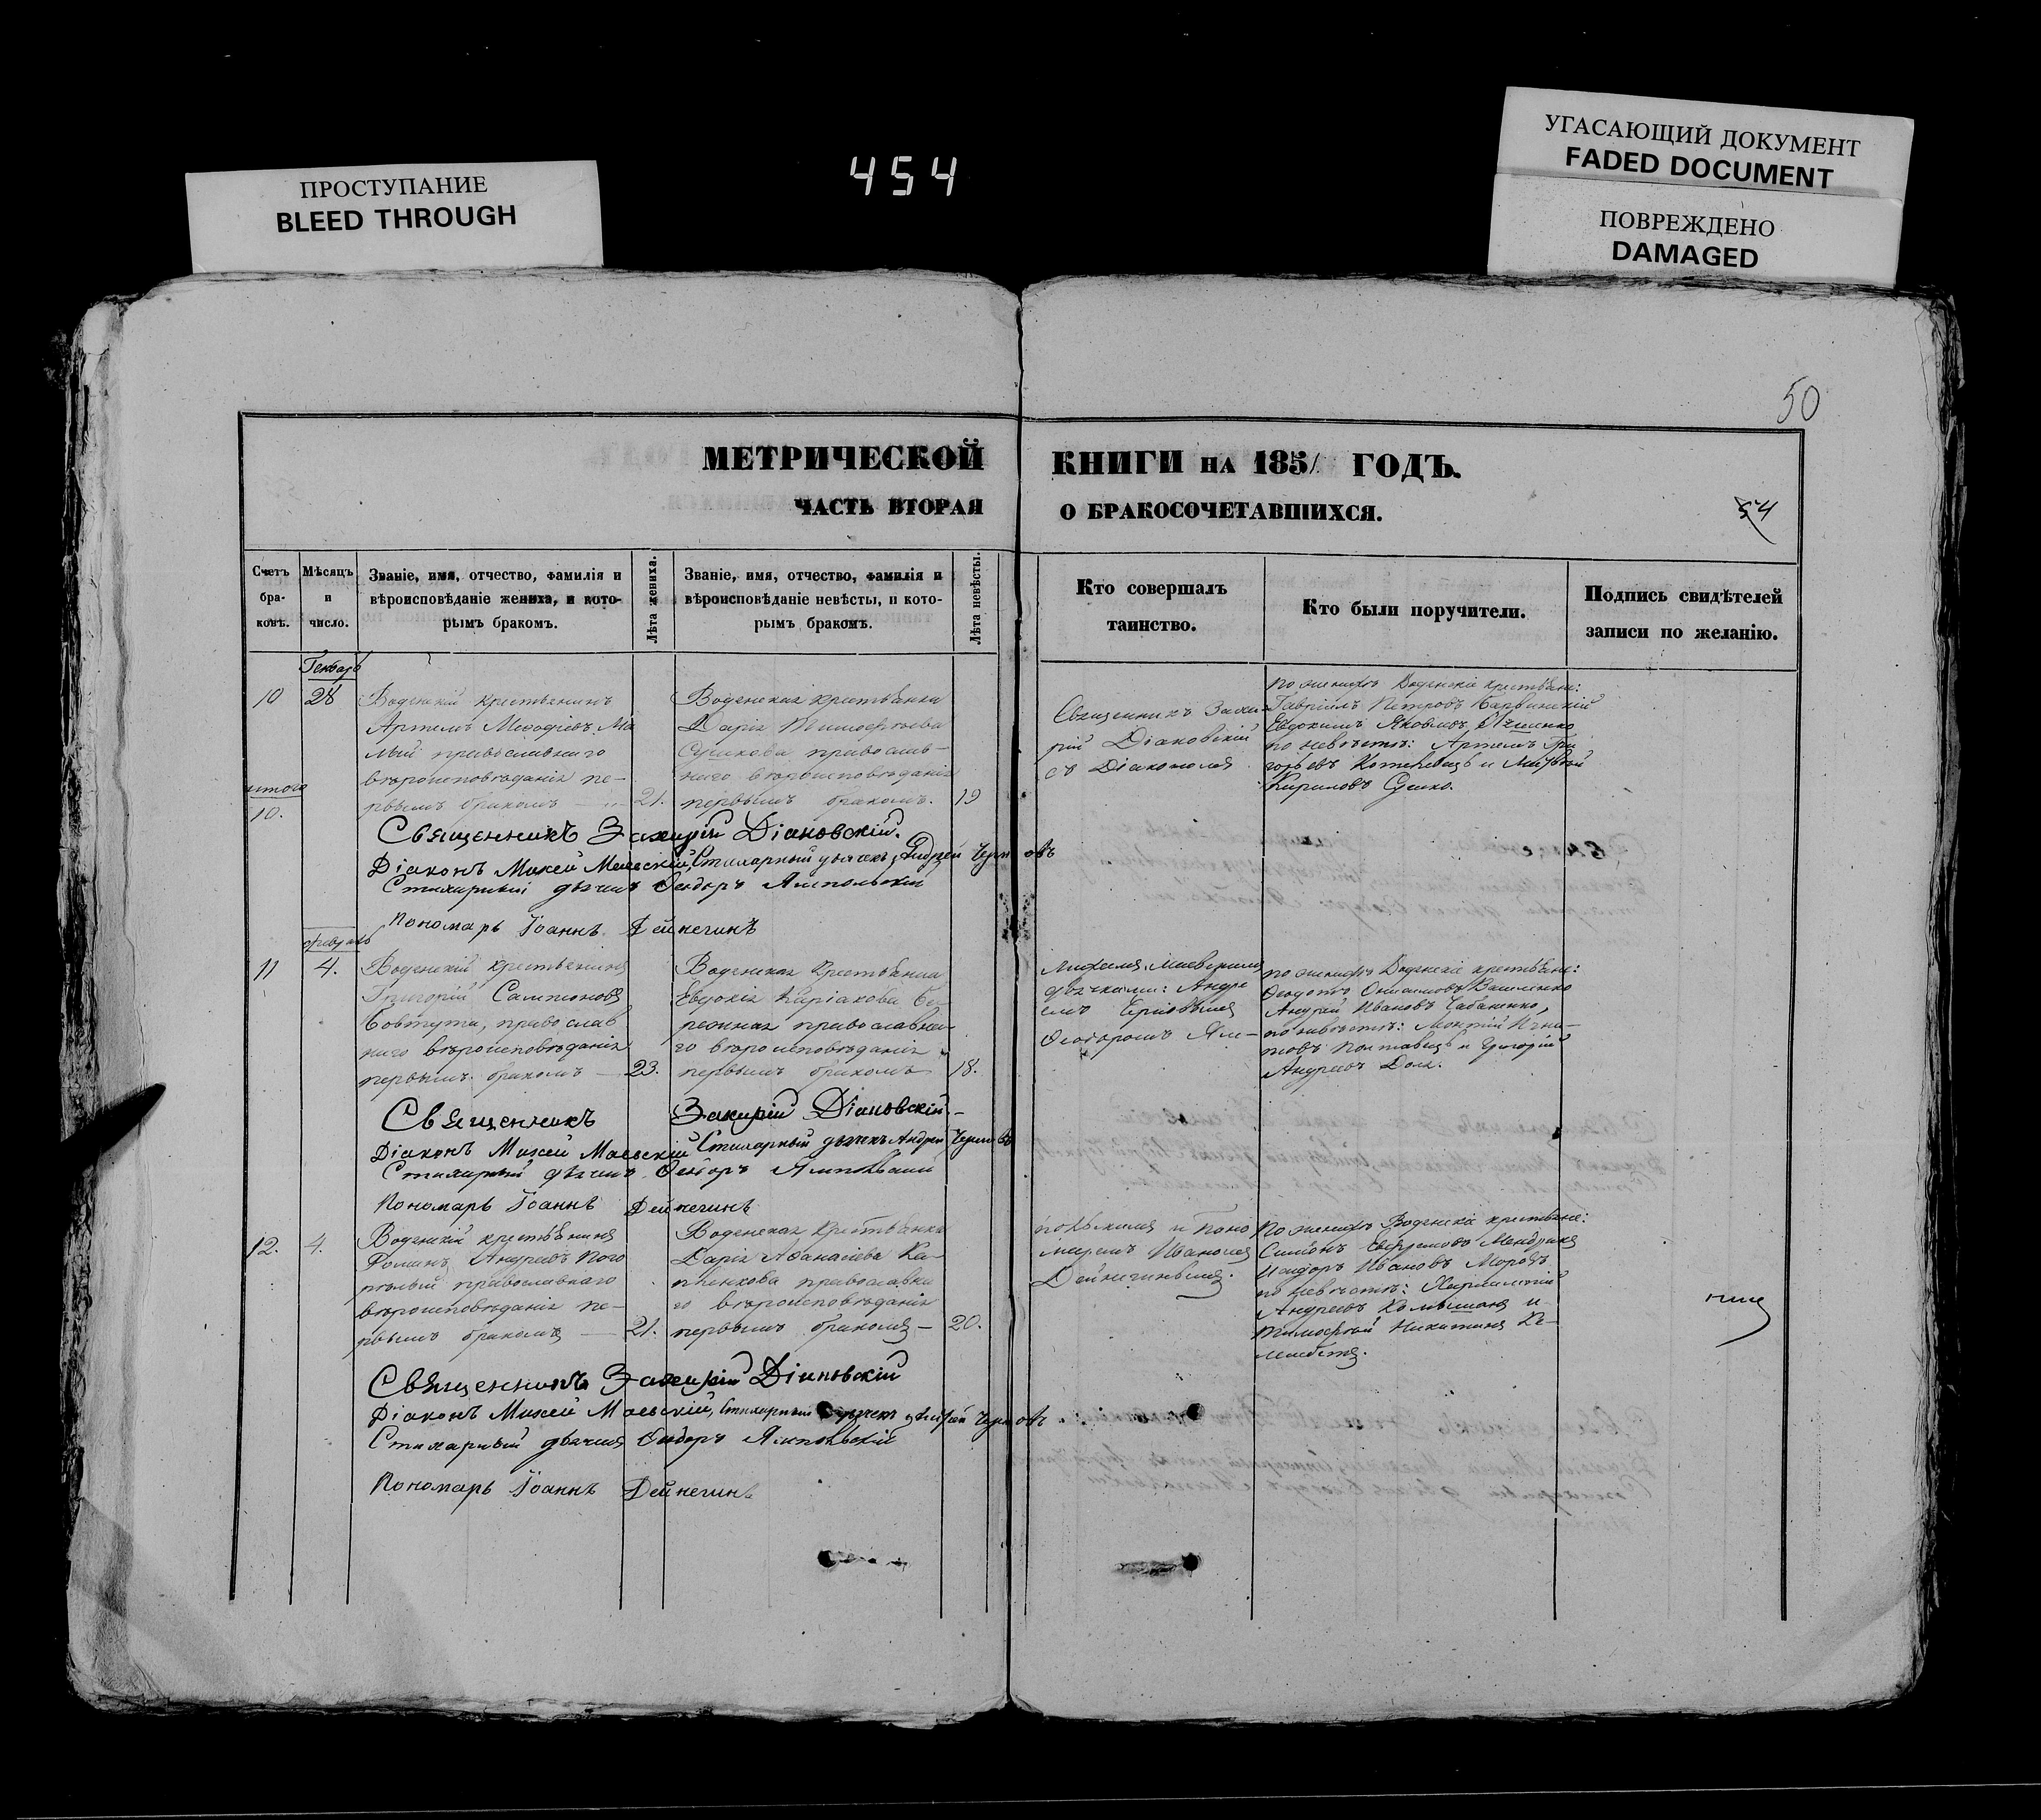 ПРОСТУПАНИЕ
BLEED THROUGH
454
УГАСАЮЩИЙ ДОКУМЕНТ
FADED DOCUMENT
ПОВРЕЖДЕНО
DAMAGED
50
МЕТРИЧЕСКОЙ КНИГИ НА 1851 ГОДЪ.
ЧАСТЬ ВТОРАЯ О БРАКОСОЧЕТАВШИХСЯ.
54
Счетъ
бра-
ковъ.
Мѣсяцъ
и
число.
Званіе, имя, отчество, фамилія и
вѣроисповѣданіе жениха, и кото-
рымъ бракомъ.
Лѣта жениха.
Званіе, имя, отчество, фамилія и
вѣроисповѣданіе невѣсты, и кото-
рымъ бракомъ.
Лѣта невѣсты.
Кто совершалъ
таинство.
Кто были поручители.
Подпись свидѣтелей
записи по желанію.
Генварь
10
28
Воденскій крестьянинъ
Артемъ Меѳодіевъ Ма
лый православнаго
вѣроисповѣданія пе-
рвымъ бракомъ
21.
Воденская крестьянка
Дарія Тимофѣева
православ-
наго вѣроисповѣданія
первымъ бракомъ.
19
Священникъ Заха-
рій Діановскій
съ Діакономъ
по женихѣ Воденскіе крестьяне:
Гавріилъ Петровъ
Евдокимъ Яковлевъ
по невѣстѣ: Артемъ Гри
горьевъ и
Кириловъ
итого
10.
Священникъ Захарій Діановскій.
Діаконъ Мокей Маевскій, Стихарный дьячекъ Андрей Черновъ
Стихарный дьячекъ Ѳеодоръ Ямпольскій
Пономарь Іоаннъ Дейнегинъ
Февраль
11
4.
Воденскій крестьянинъ
Григорій Сампсоновъ
Човтута, православ
наго вѣроисповѣданія
первымъ бракомъ
23.
Воденская крестьянка
Евдокія Киріакова
православна-
го вѣроисповѣданія
первымъ бракомъ
18.
Мокеемъ Маевскимъ
дьячками: Андре
емъ Черновымъ
Ѳеодоромъ Ям-
по женихѣ Воденскіе крестьяне:
Ѳеодотъ
Андрей Ивановъ Чабаненко,
по невѣстѣ:
Полтавецъ и Григорій
Андреевъ
Священникъ Захарій Діановскій
Діаконъ Мокей Маевскій Стихарный дьячекъ Андрей Черновъ
Стихарный дьячекъ Ѳеодоръ Ямпольскій
Пономарь Іоаннъ Дейнегинъ
12.
4.
Воденскій крестьянинъ
Романъ Андреевъ Пого
рѣлый православнаго
вѣроисповѣданія пе-
рвымъ бракомъ
21.
Воденская крестьянка
Дарія Аѳанасіева
православна
го вѣроисповѣданія
первымъ бракомъ
20.
польскимъ и Поно
маремъ Иваномъ
Дейнегинымъ.
По женихѣ Воденскіе крестьяне:
Симонъ
Исидоръ Ивановъ Морозъ
по невѣстѣ:
Андреевъ и
Тимофей Никитинъ
Священникъ Захарій Діановскій
Діаконъ Мокей Маевскій, Стихарный дьячекъ Андрей Черновъ
Стихарный дьячекъ Ѳеодоръ Ямпольскій
Пономарь Іоаннъ Дейнегинъ